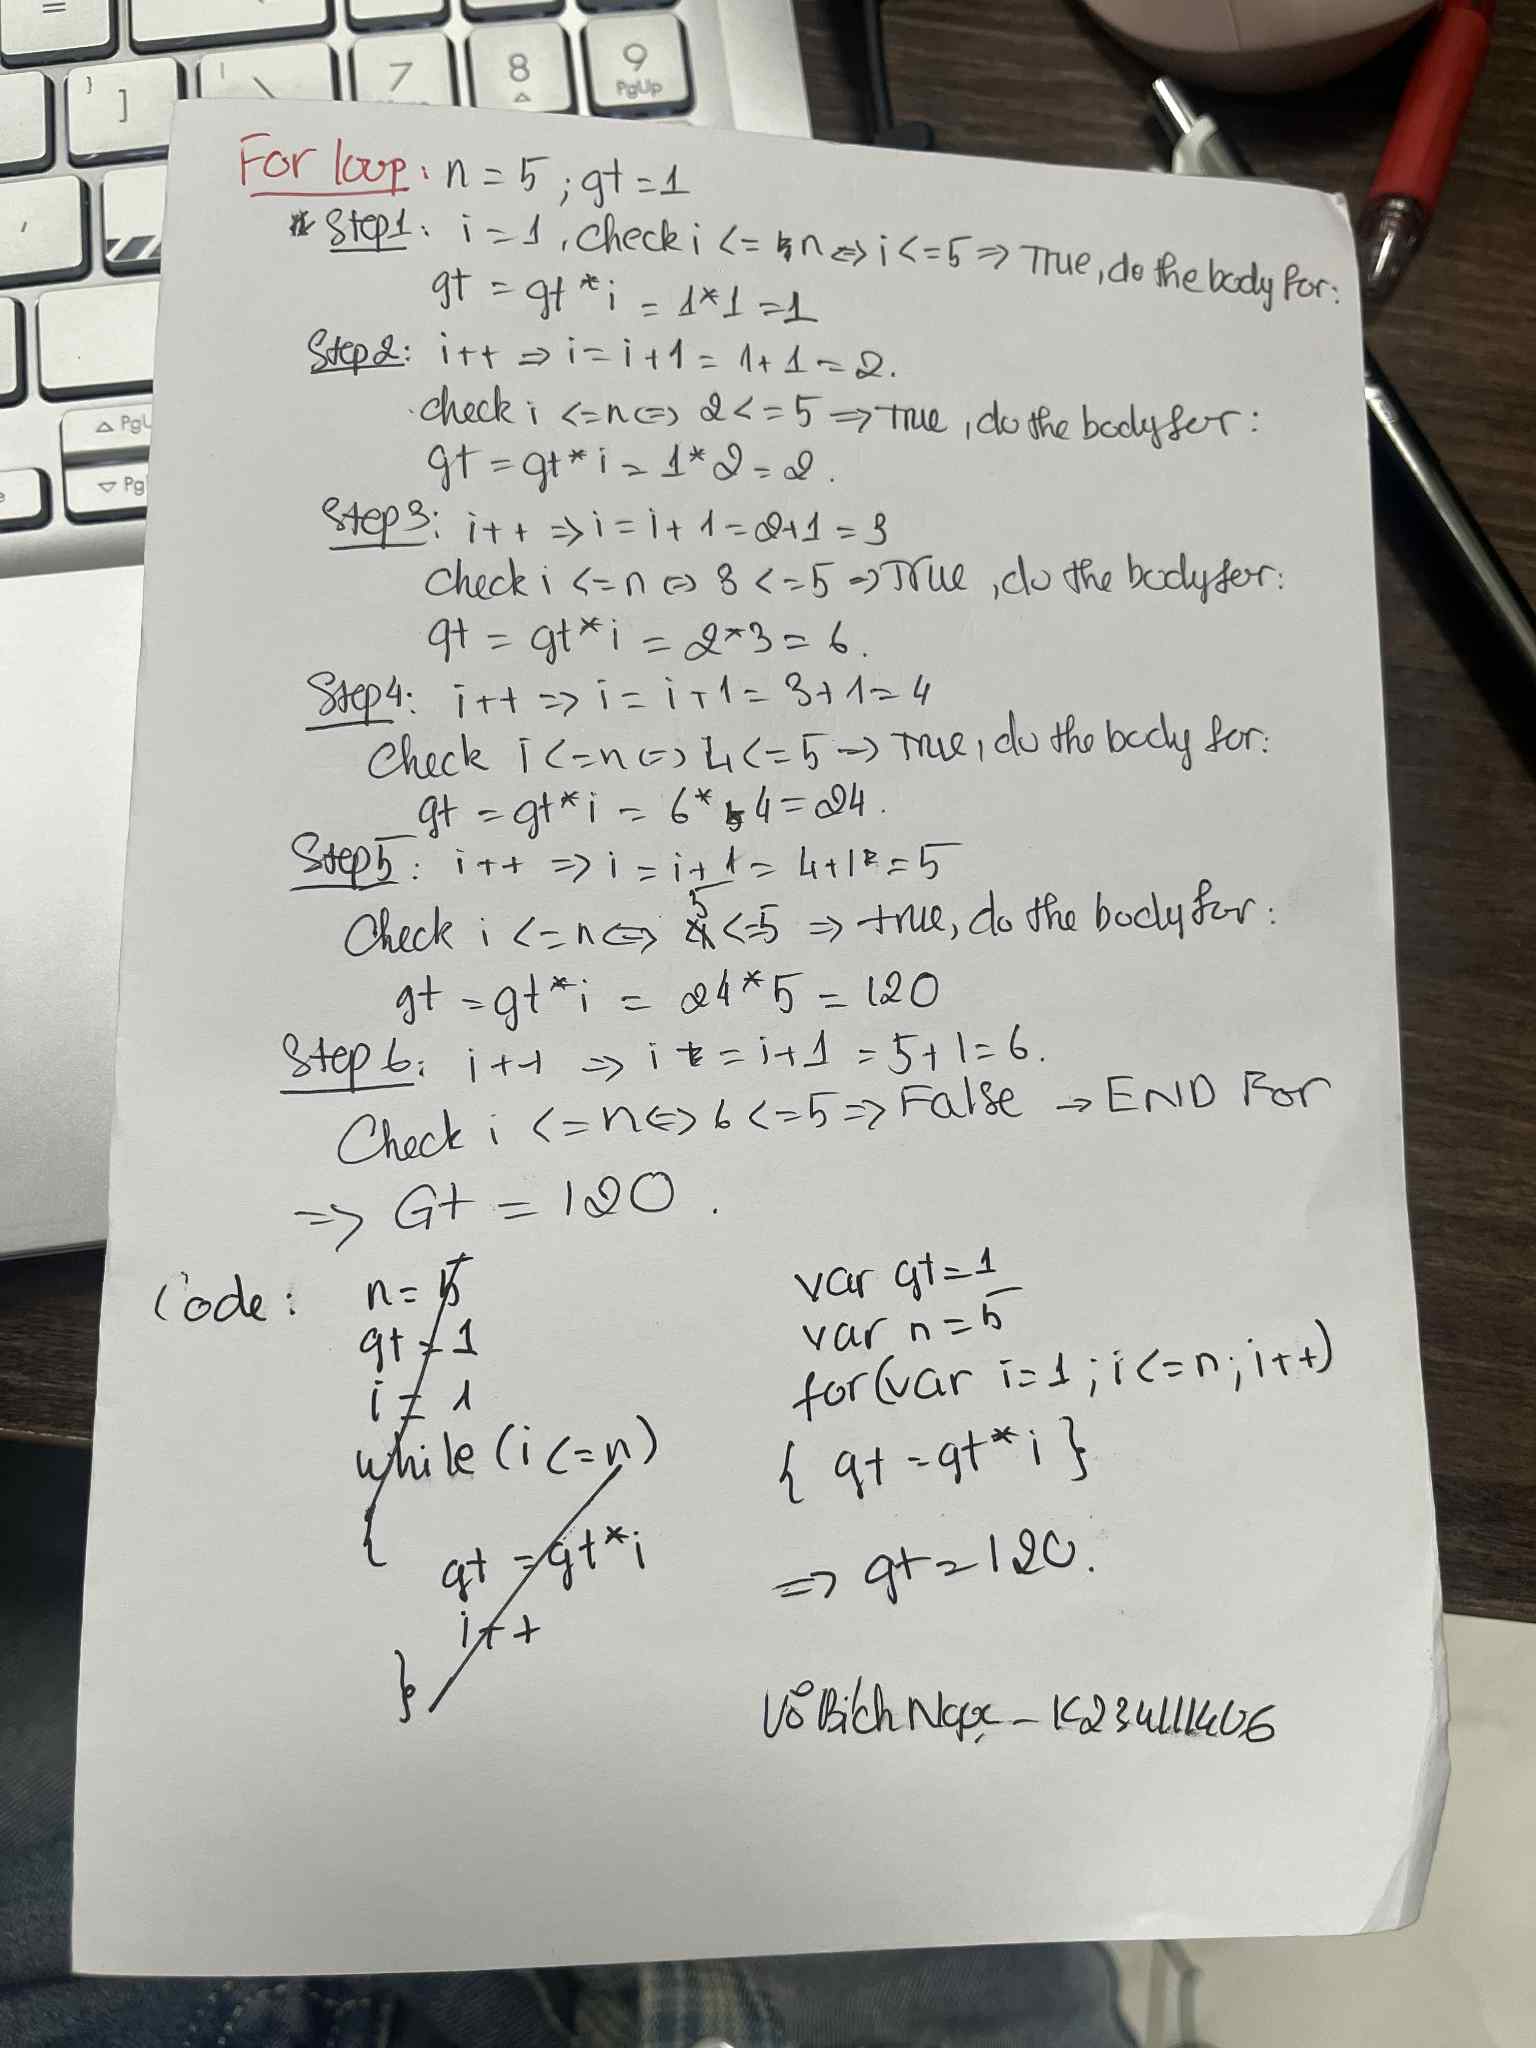 =
}
]
|
\
7
8
9
PgUp
PgU
Pg
For loop: n = 5 ; gt = 1
* Step1: i = 1, check i <= n <=> i <= 5 => True, do the body for:
gt = gt * i = 1*1 = 1
Step2: i++ => i = i+1 = 1+1 = 2.
check i <= n <=> 2 <= 5 => True, do the body for:
gt = gt * i = 1*2 = 2.
Step3: i++ => i = i+1 = 2+1 = 3
check i <= n <=> 3 <= 5 => True, do the body for:
gt = gt * i = 2*3 = 6.
Step4: i++ => i = i+1 = 3+1 = 4
Check i <= n <=> 4 <= 5 => True, do the body for:
gt = gt * i = 6*4 = 24.
Step5: i++ => i = i+1 = 4+1 = 5
Check i <= n <=> 5 <= 5 => true, do the body for:
gt = gt * i = 24*5 = 120
Step6: i++ => i = i+1 = 5+1 = 6.
Check i <= n <=> 6 <= 5 => False -> END For
=> Gt = 120.
Code:
n = 5
gt = 1
i = 1
while (i <= n)
{
gt = gt*i
i++
}
var gt = 1
var n = 5
for(var i=1; i<=n; i++)
{ gt = gt*i }
=> gt = 120.
Võ Bích Ngọc - K234111406